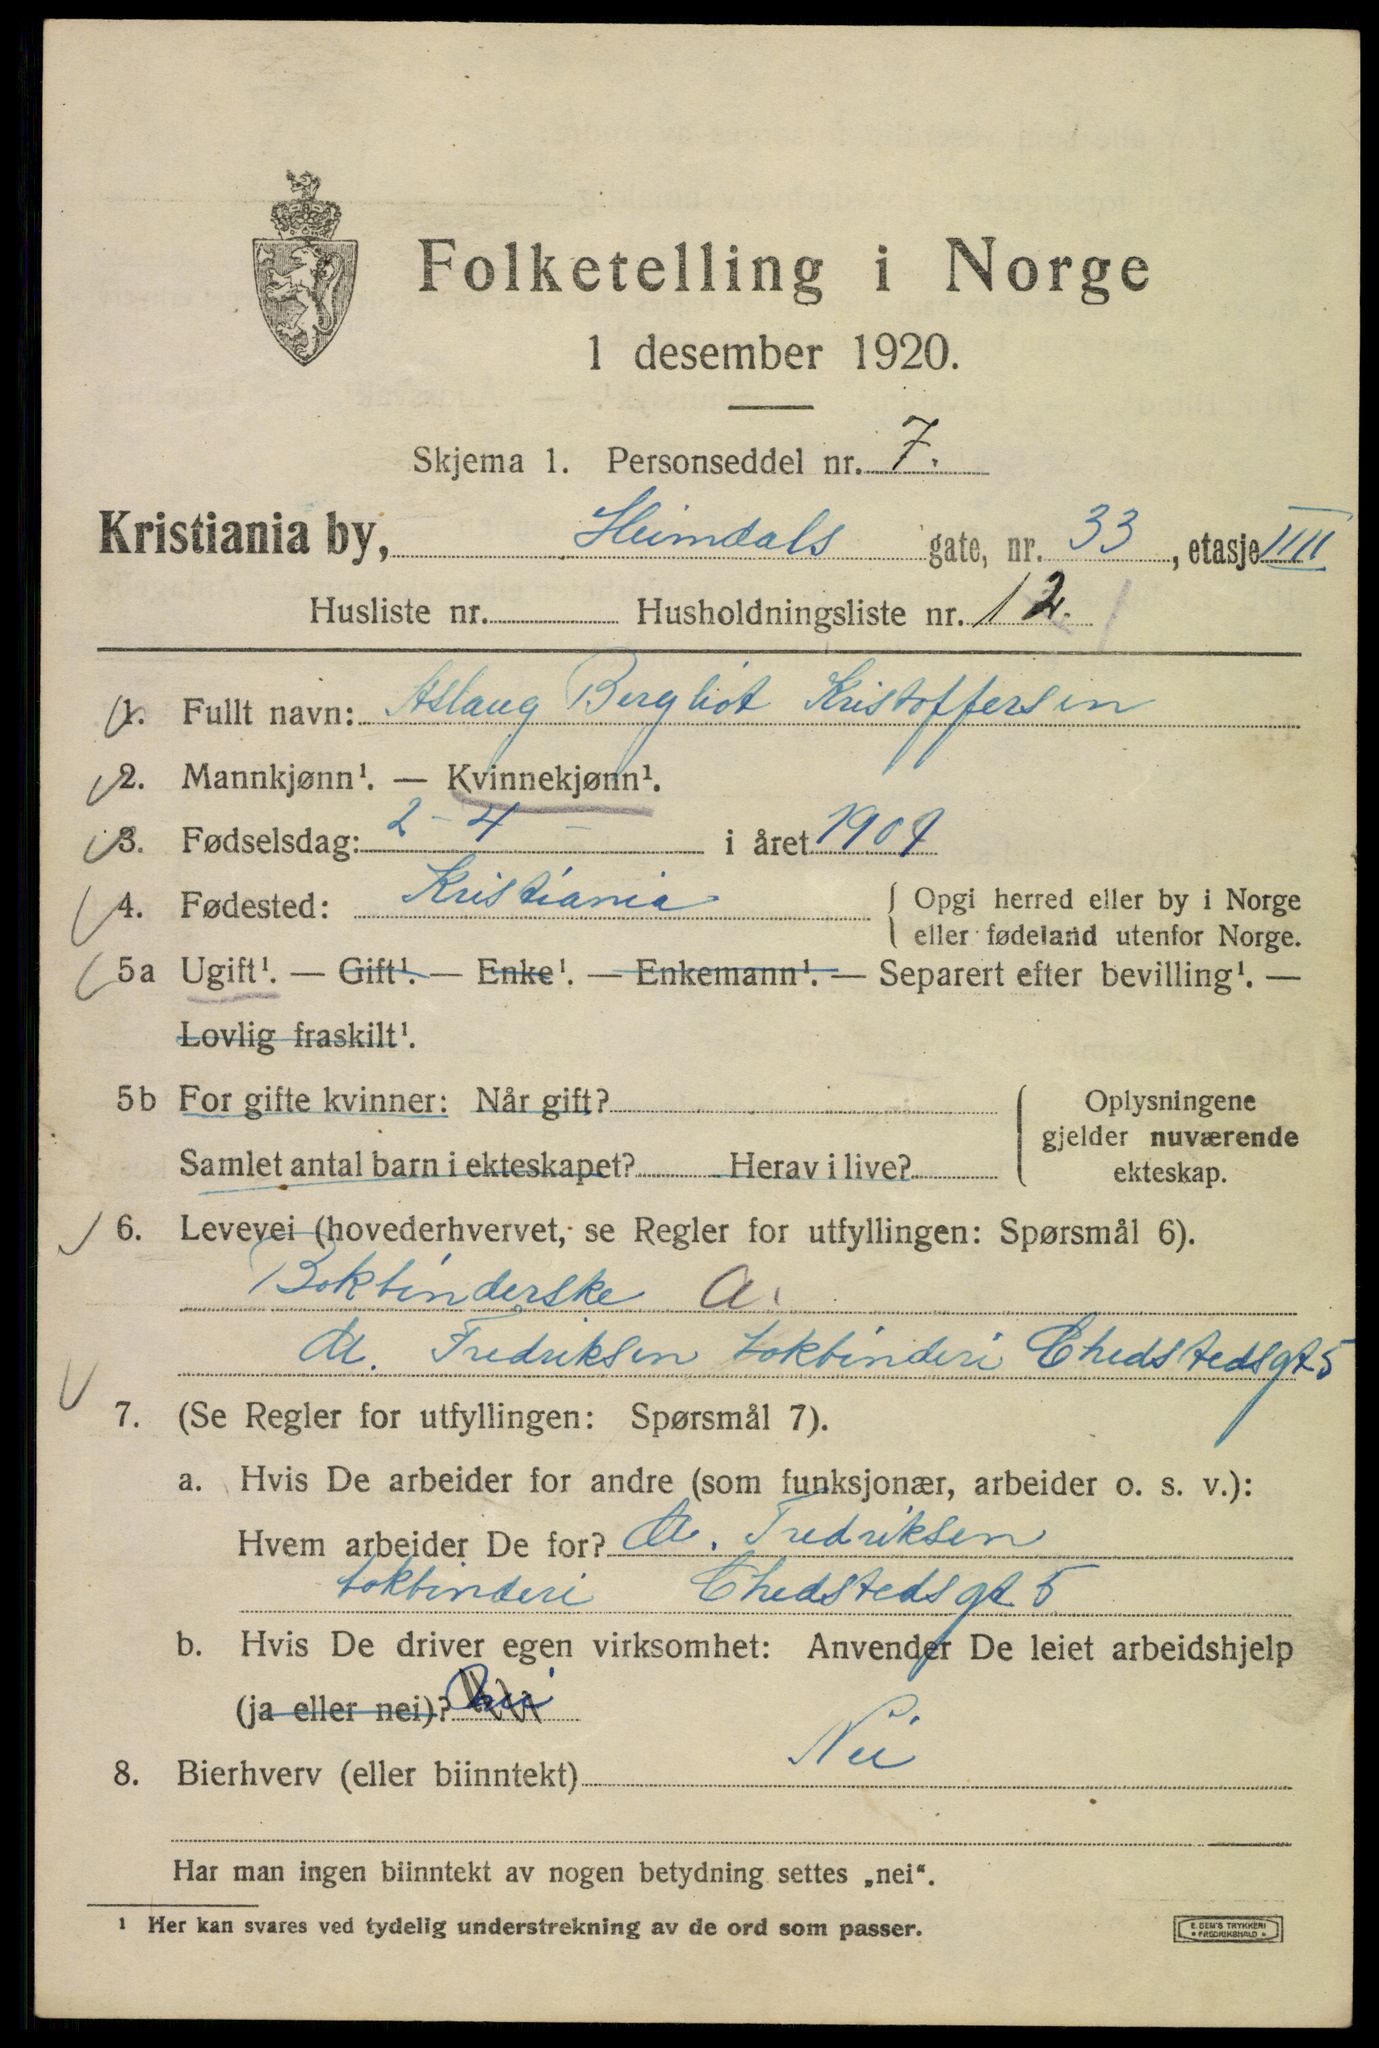 Folketelling i Norge
1 desember 1920.
Skjema 1. Personseddel nr. 7.
Kristiania by, Heimdals gate, nr. 33, etasje IIII
Husliste nr. Husholdningsliste nr. 12.
1. Fullt navn: Aslaug Bergliot Kristoffersen
2. Mannkjønn¹. — Kvinnekjønn¹.
3. Fødselsdag: 2 - 4 - i året 1901
4. Fødested: Kristiania { Opgi herred eller by i Norge
eller fødeland utenfor Norge.
5a Ugift¹. — Gift¹. — Enke¹. — Enkemann¹. — Separert efter bevilling¹. —
Lovlig fraskilt¹.
5b For gifte kvinner: Når gift? { Oplysningene
gjelder nuværende
Samlet antal barn i ekteskapet? Herav i live?
ekteskap.
6. Levevei (hovederhvervet, se Regler for utfyllingen: Spørsmål 6).
Bokbinderske A.
M. Fredriksen bokbinderi Ehedstedsgt 5
7. (Se Regler for utfyllingen: Spørsmål 7).
a. Hvis De arbeider for andre (som funksjonær, arbeider o. s. v.):
Hvem arbeider De for? M. Fredriksen
bokbinderi Ehedstedsgt 5
b. Hvis De driver egen virksomhet: Anvender De leiet arbeidshjelp
(ja eller nei)?
8. Bierhverv (eller biinntekt) Nei
Har man ingen biinntekt av nogen betydning settes „nei“.
¹ Her kan svares ved tydelig understrekning av de ord som passer.
E. SEM'S TRYKKERI
• FREDRIKSHALD •